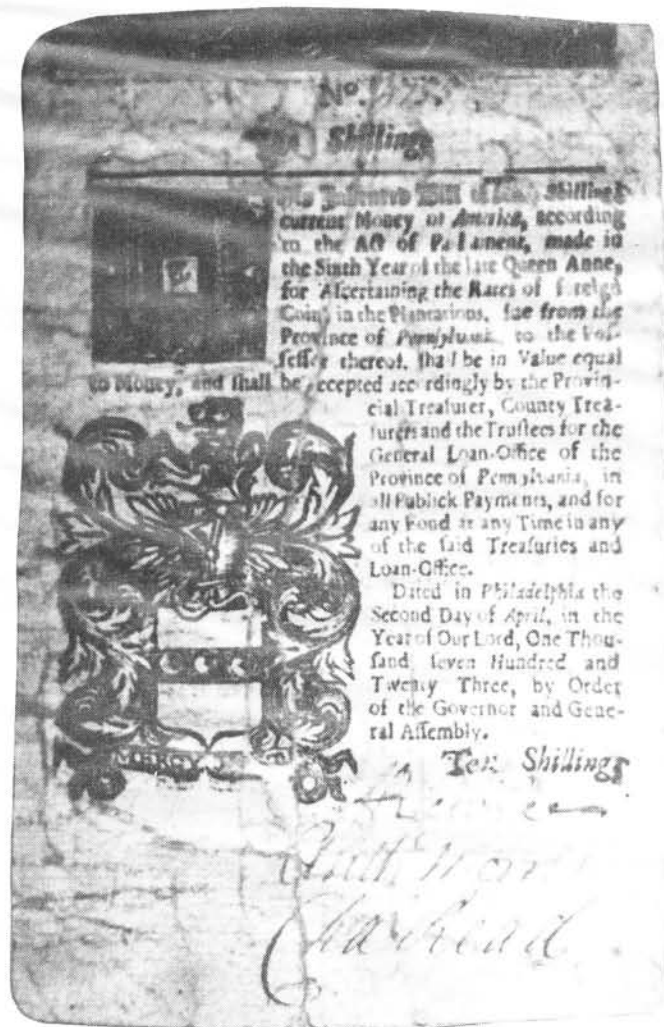 No.
Shillings
Indented Bill of Shillings
current Money of America, according
to the Act of Parliament, made in
the Sixth Year of the late Queen Anne,
for Ascertaining the Rates of foreign
Coins in the Plantations, due from the
Province of Pennsylvania to the Pos-
sessor thereof, shall be in Value equal
to Money, and shall be accepted accordingly by the Provin-
cial Treasurer, County Trea-
surers and the Trustees for the
General Loan-Office of the
Province of Pennsylvania, in
all Publick Payments, and for
any Fond at any Time in any
of the said Treasuries and
Loan-Office.
Dated in Philadelphia the
Second Day of April, in the
Year of Our Lord, One Thou-
sand seven Hundred and
Twenty Three, by Order
of the Governor and Gene-
ral Assembly.
Ten Shillings
MERCY
Cha Read